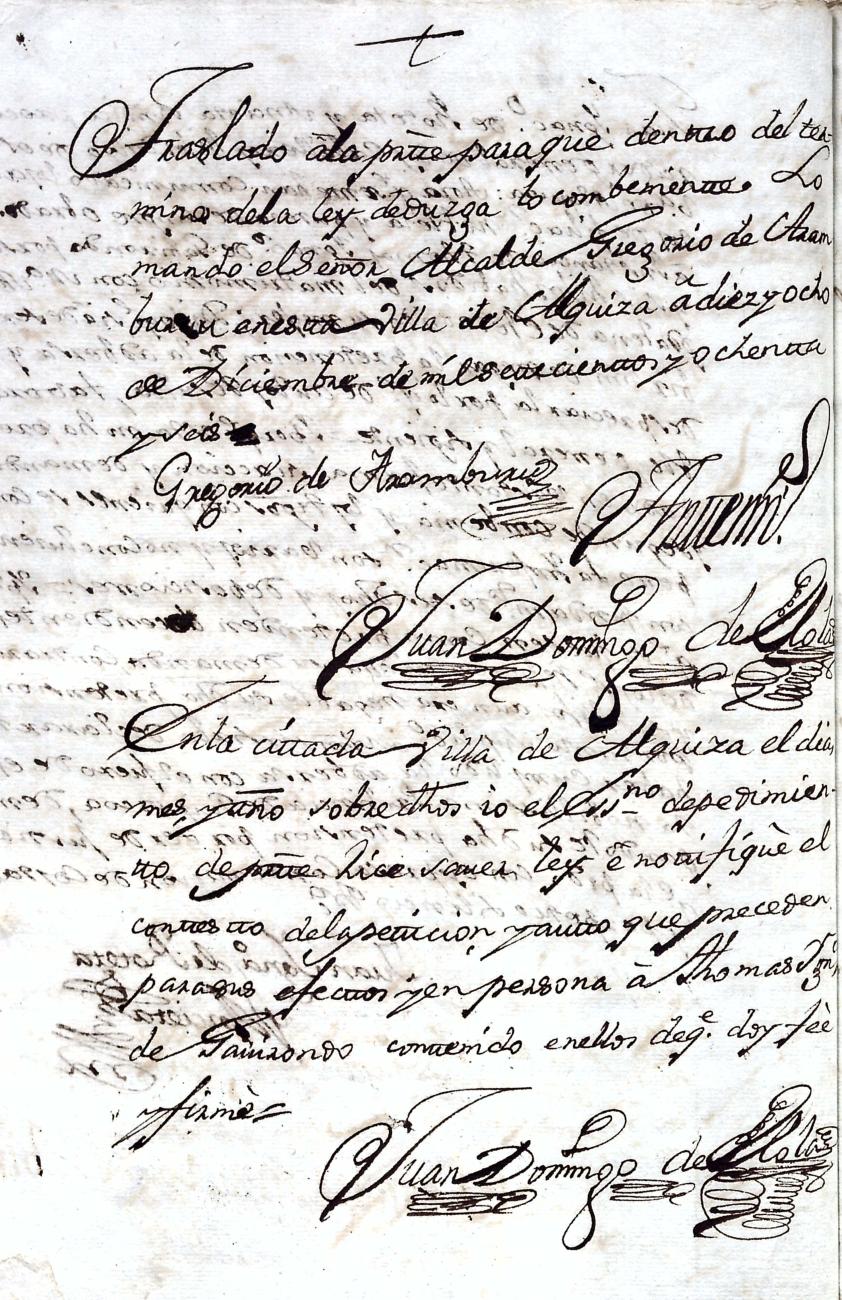 Traslado â la prtte para que dentro del ter-
mino de la ley deduzga lo combeniente. Lo
mando el Señor Alcalde Gregorio de Aram
buru en esta Villa de Alquiza â diez y ocho
de Diciembre de mil settecienttos y ochentta
y seis
Gregorio de Aramburu
Antemi
Juan Domingo de Olola
En la cittada Villa de Alquiza el dia,
mes, y año sobre dhos io el Essno de pedimien-
tto de prtte hice saver ley, ê nottifiquè el
contestto de la petticion y autto que preceden
para sus efecttos y en persona â Thomas
de Gaiurondo conttenido en ellos de qe. doy feè
y firmè=
Juan Domingo de Olola